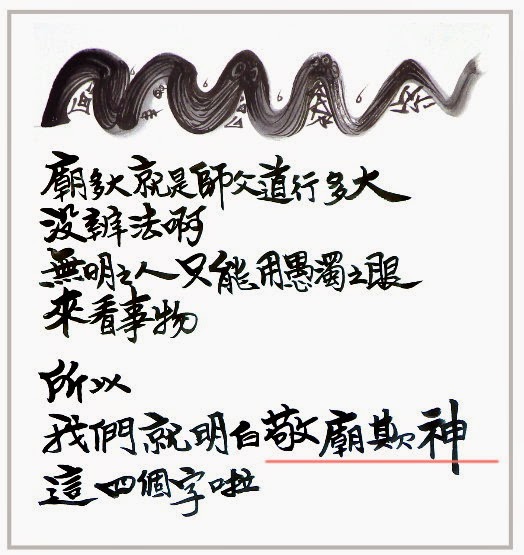 廟多大就是師父道行多大
没辦法啊
無明之人只能用愚濁之眼
來看事物
所以
我們就明白敬廟欺神
這四個字啦